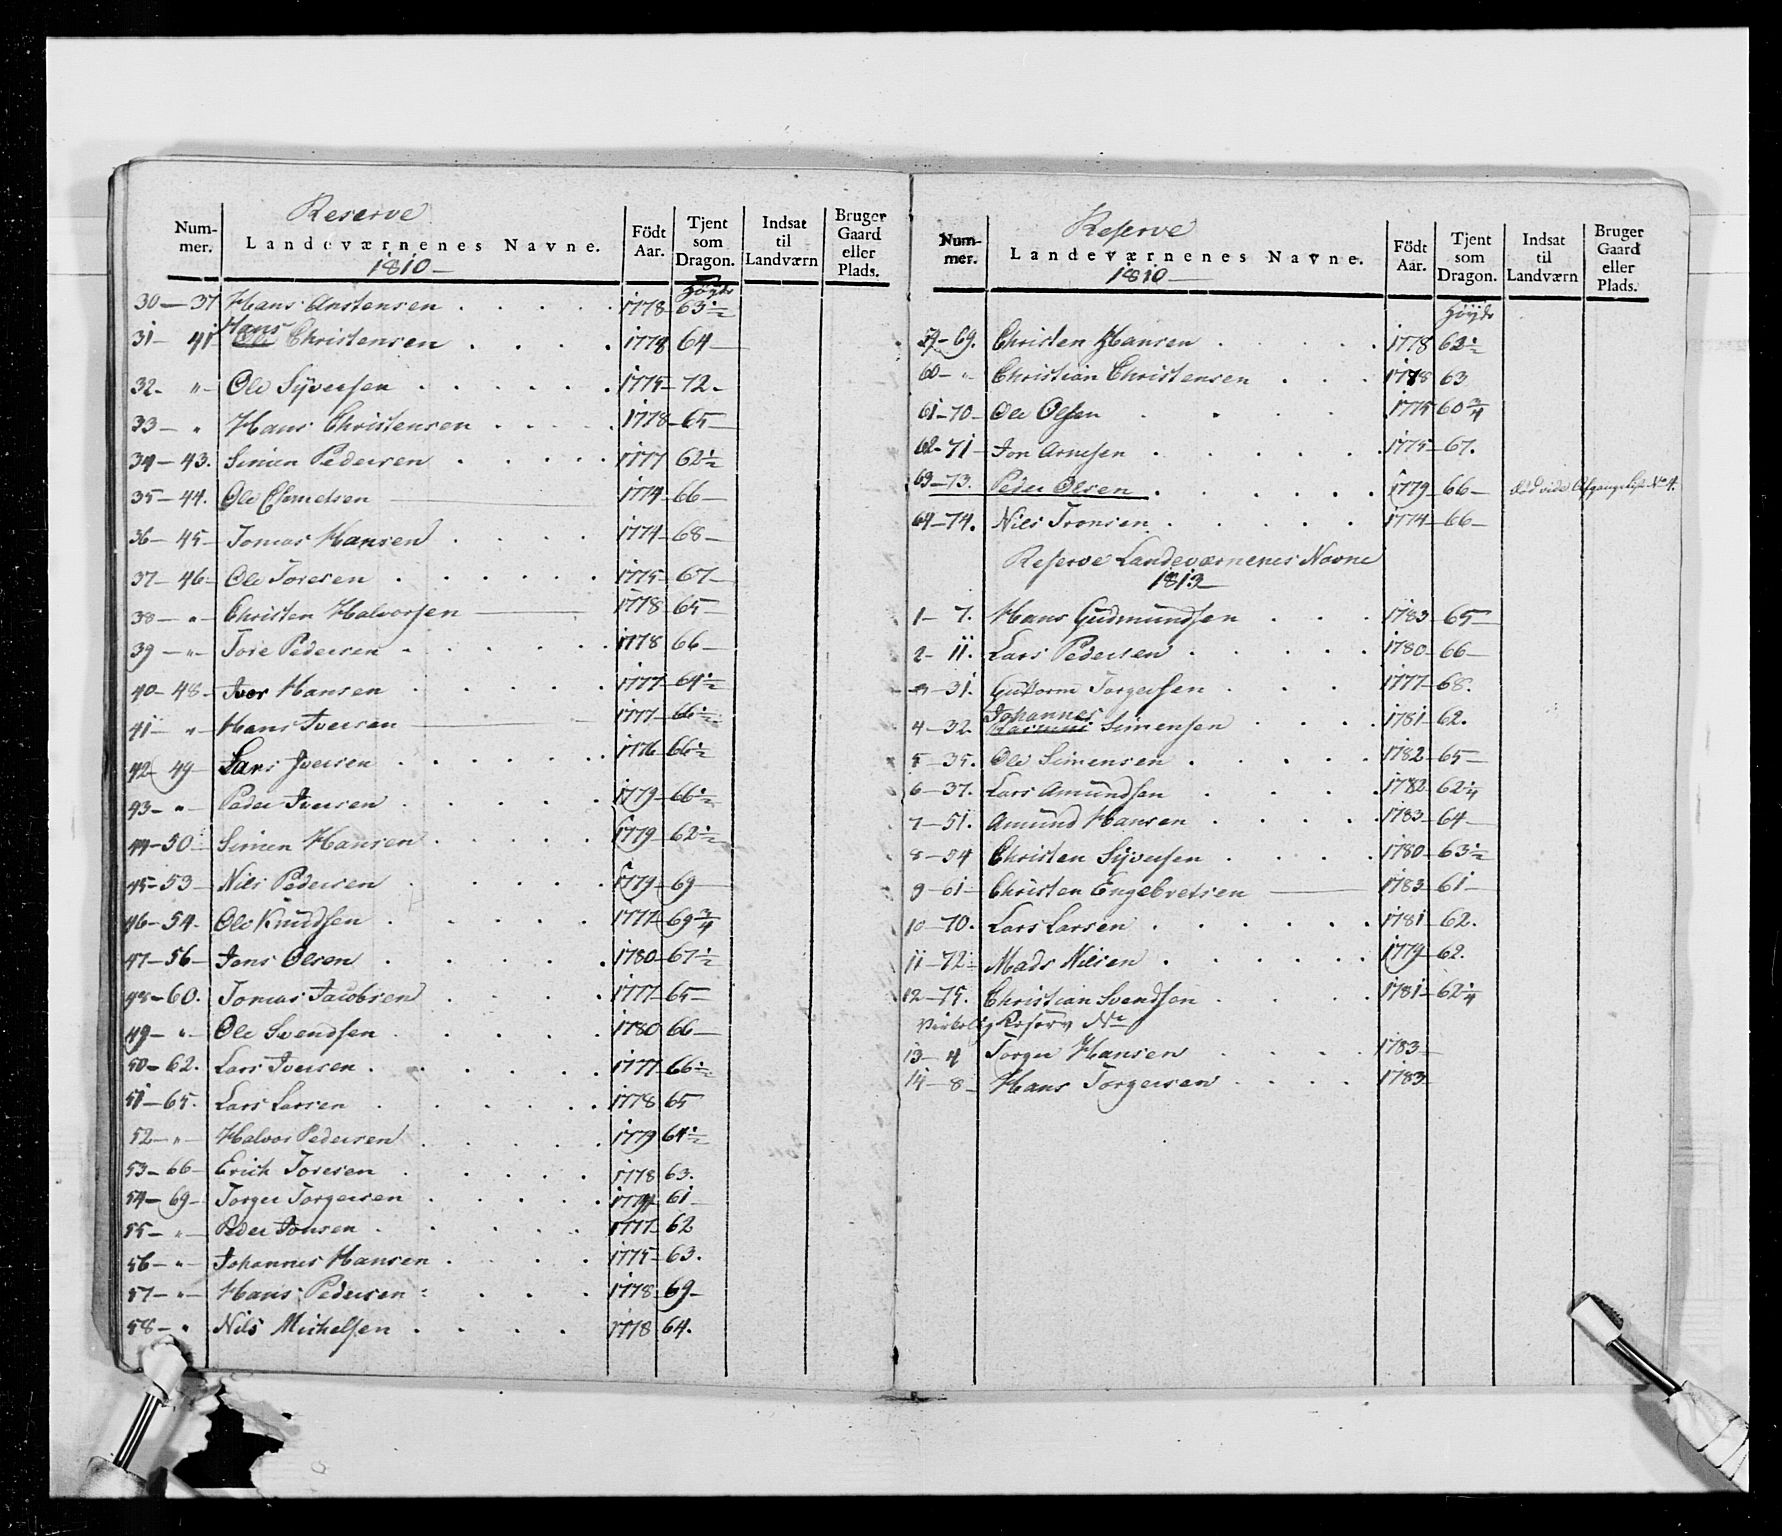 Reserve
Num-
mer.
Landeværnenes Navne.
1810
Födt
Aar.
Tjent
som
Dragon.
Indsat
til
Landværn
Bruger
Gaard
eller
Plads.
Höyde
30 — 37 Hans Anstensen . . . . 1778 63½
31 — 41 Hans Ole Christensen . . . . 1778 64 —
32. „ — Ole Syversen . . . . . . 1775 — 72.
33 — „ Hans Christensen . . . . . 1778 — 65 —
34 — 43. Simen Pedersen . . . . . 1777 62½
35 — 44. Ole — 1774 — 66 —
36 — 45 — Tomas Hansen . . . . 1774 — 68 —
37 — 46 — Ole Toresen . . . . . . 1775 — 67 —
38 — „ — Christen Halvorsen — 1778 65 —
39 — „ — Tore Pedersen . . . . . . 1778 66 —
40 — 48 — Iver Hansen . . . . . 1777 — 64½
41 — „ — Hans Iversen — 1777 — 66½
42 — 49 — Lars Iversen . . . . . . 1776 66½
43 — „ — Peder Iversen . . . . . 1779 — 66½
44 — 50 — Simen Hansen . . . . . 1779 — 62½
45 — 53 — Nils Pedersen . . . . . 1779 — 69 —
46 — 54. Ole Knudsen . . . . . 1777 — 69¾
47 — 56 — Jens Olsen . . . . . 1780 — 67½
48 — 60. Tomas Jacobsen . . . . 1777 — 65 —
49 — „ — Ole Svendsen . . . . . 1780 66 —
50 — 62. Lars Iversen . . . . . 1777 — 66½
51 — 65. Lars Larsen . . . . . 1778 65
52 — „ — Halvor Pedersen . . . . 1779 64½
53 — 66 — Erich Toresen . . . . . 1778 63.
54 — 69 — Torger Torgersen . . . . 1774 61 —
55 — „ — Peder Jonsen . . . . . 1777 — 62
56 — „ — Johannes Hansen . . . . 1775 — 63.
57 — „ — Hans Pedersen . . . . 1778 69 —
58 — „ Nils Michelsen . . . . 1778 64.
Reserve
Num-
mer.
Landeværnenes Navne.
1810
Födt
Aar.
Tjent
som
Dragon.
Indsat
til
Landværn
Bruger
Gaard
eller
Plads.
Höyde
59 — 69. Christen Hansen . . . . 1778 62½
60 — „ Christian Christensen . . . 1778 63
61 — 70 — Ole Olsen . . . . 1775 60¾
62 — 71 — Jon Arnesen . . . . . 1775 — 67.
63 — 73. Peder Olsen . . . . . 1779 66 — Död vide Afgangslist No 4.
64 — 74. Nils Tronsen . . . . . 1774 — 66 —
Reserve Landeværnenes Navne
1813
1 — 7. Hans Gudmundsen . . . 1783 — 65 —
2 — 11. Lars Pedersen . . . . . 1780 — 66 —
3 — 31. Guttorm Torgersen . . . 1777 — 68.
4 — 32 Johannes Simensen . . . . 1781 — 62.
5 — 35. Ole Simensen . . . . . 1782 — 65 —
6 — 37. Lars Amundsen . . . . 1782 62¼
7 — 51. Amund Hansen . . . . . 1783 — 64 —
8 — 54 Christen Syversen . . . . 1780 — 63½
9 — 61 — Christen Engebretsen — 1783 — 61 —
10 — 70. Lars Larsen . . . . . 1781 62.
11 — 72 — Mads Nilsen . . . . . 1779 — 62.
12 — 75. Christian Svendsen . . . . 1781 — 62¼
Virkelig Reserv No
13 — 4 Torger Hansen . . . . 1783 —
14 — 8 — Hans Torgersen . . . . 1783